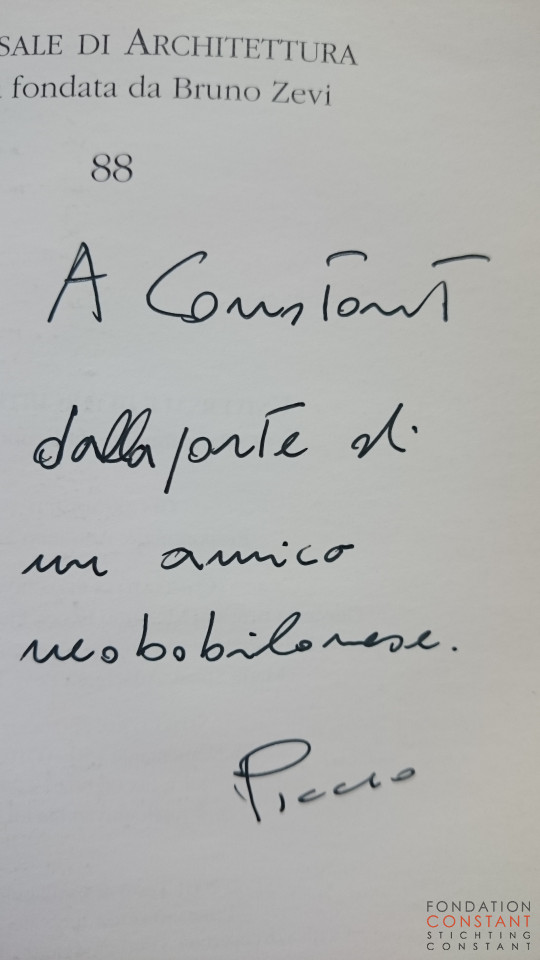 SALE DI ARCHITETTURA
fondata da Bruno Zevi
88
A Constant
dalla parte di
un amico
neobabilonese.
FONDATION
CONSTANT
STICHTING
CONSTANT